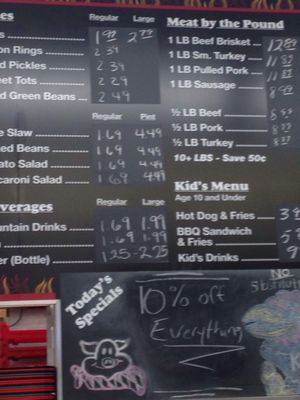 es Regular Large
s 1.99 2.79
on Rings 2.39
d Pickles 2.39
eet Tots 2.29
d Green Beans 2.49
Regular Pint
e Slaw 1.69 4.49
ed Beans 1.69 4.49
ato Salad 1.69 4.49
caroni Salad 1.69 4.49
verages Regular Large
untain Drinks 1.69 1.99
1.69 1.99
er (Bottle) 1.25-2.25
Meat by the Pound
1 LB Beef Brisket
1 LB Sm. Turkey
1 LB Pulled Pork
1 LB Sausage
½ LB Beef
½ LB Pork
½ LB Turkey
10+ LBS - Save 50¢
Kid's Menu
Age 10 and Under
Hot Dog & Fries 3
BBQ Sandwich
& Fries 5
Kid's Drinks
Today's
Specials
10% off
Everything
NO